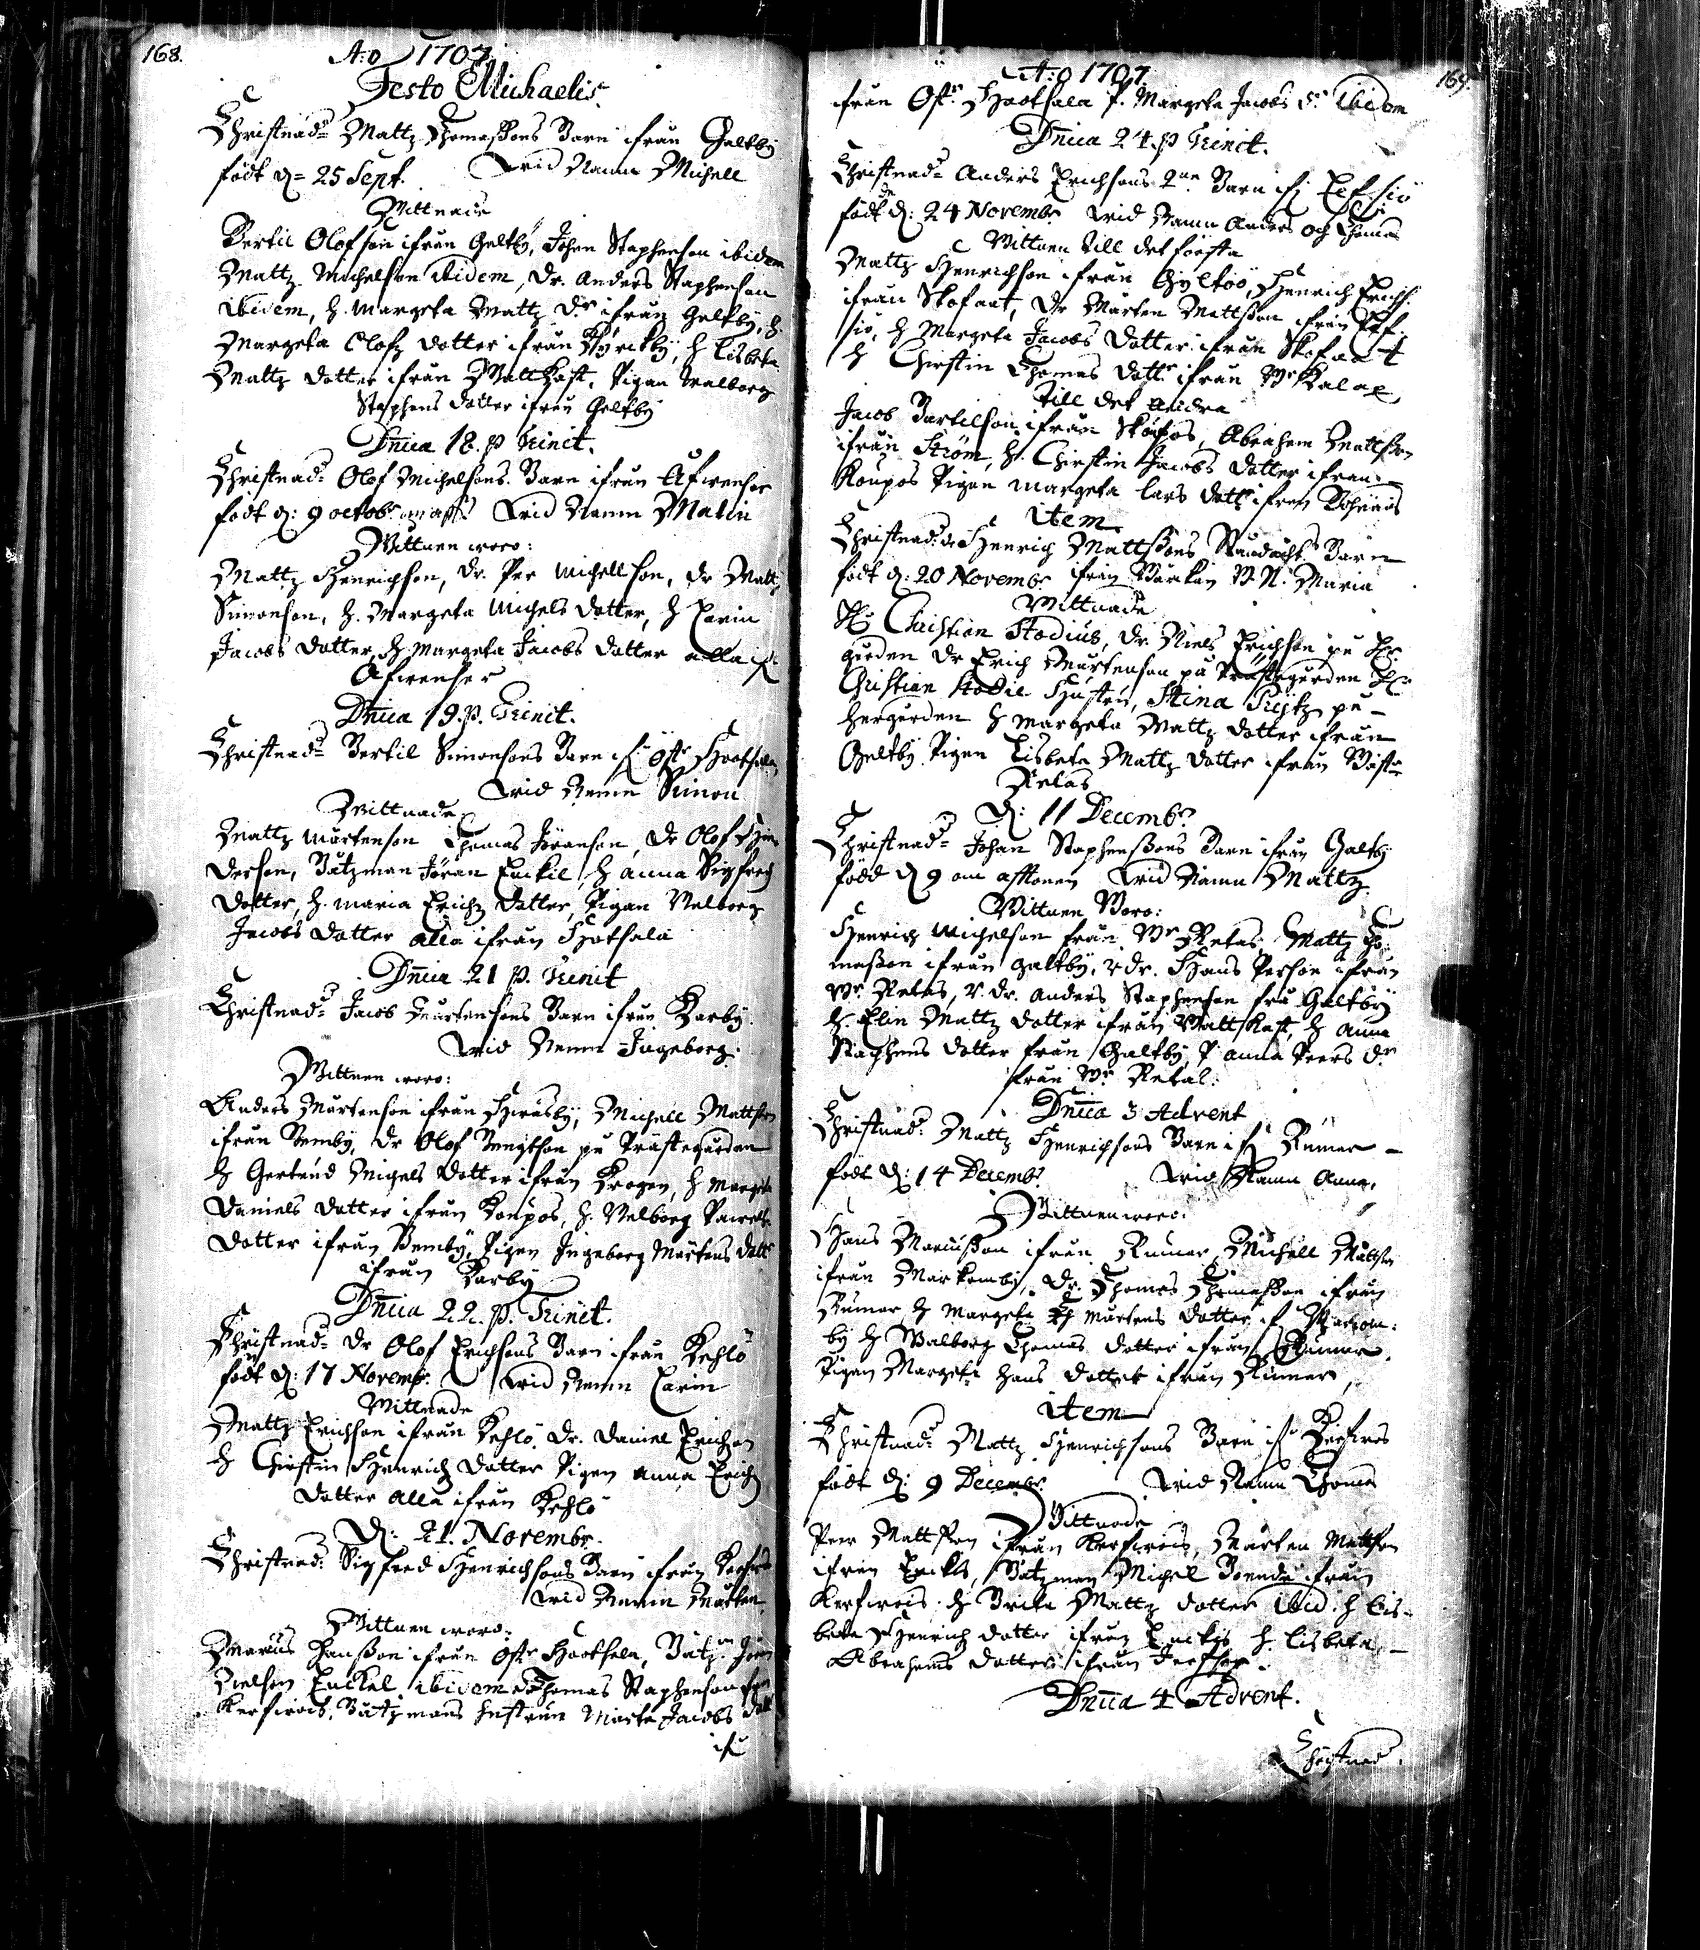 168.
A:o 1707.
Festo Michaelis.
Christnad= Mattz Thomaßons Barn ifrån Galtby
födt d= 25 Sept. wid Namn Michell
Wittnade
Bertil Olofson ifrån Galtby, Johan Staphenson ibidem
Mattz Michelson ibidem, dr. Anders Staphenson
ibidem, h. Margeta Mattz dr ifrån Galtby, h.
Margeta Olofz dotter ifrån Kyrckby, h Lisbeta
Mattz dotter ifrån Wattkast, Pigan Walborg
Staphens dotter ifrån Galtby
Dnica 18. p Trinit.
Christnad= Olof Michelsons Barn ifrån Afwensor
födt d: 9 octobr wid Namn Malin
Wittnen woro:
Mattz Henrichson, dr. Per Michellson, dr Mattz
Simonson, h. Margeta Michels dotter, h Carin
Jacobs dotter, h Margeta Jacobs dotter alla if:
Afwensor
Dnica 19. p. Trinit.
Christnad= Bertil Simonsons Barn if: Östr Hootsala
wid Namn Simon
Wittnade
Mattz Mårtenson Thomas Jöranson, dr Olof
derson, Båtzman Jöran Enckil, h Anna Sigfredz
dotter, h. Maria Erichz dotter, Pigan Walborg
Jacobs dotter alla ifrån Hotsala
Dnica 21 p. Trinit
Christnad= Jacob Mårtensons Barn ifrån Korby
wid Namn Ingeborg.
Wittnen woro:
Anders Mårtenson ifrån Hwasby, Michell Mattson
ifrån Bemby, dr Olof Bengtson på Prästegården
h Gertrud Michels dotter ifrån Krogen, h Margeta
Daniels dotter ifrån Konpos, h. Walborg Pawels
dotter ifrån Bemby, Pigan Ingeborg Mårtens dottr
ifrån Korby
Dnica 22. p. Trinit.
Christnad= dr Olof Erichsons Barn ifrån Kehlö
födt d: 17 Novemb: wid Namn Carin
Wittnade
Mattz Erichson ifrån Kehlö, dr. Daniel Erichson
h Chirstin Henrichz dotter Pigan Anna Erichz
dotter alla ifrån Kehlö
D: 21. Novembr.
Christnad: Sigfred Henrichsons Barn ifrån
wid Namn Mårten
Wittnen woro:
Marcus Hanßon ifrån Östr Hootsala, Båtzm
Nielson Enckel ibidem Thomas Staphenson
Kerfwois, Båtzmans hustrun Marta Jacobs dott
ifr

169.
A:o 1707
ifrån Östr Hootsala P. Margeta Jacobs dr ibidem
Dnica 24. p Trinit.
Christnad= Anders Erichsons 2ne Barn if:
födde d: 24 Novembr wid Namn Anders och Thomas
Wittnen till det första
Mattz Henrichson ifrån Gyltöö, Henrich Erichs:
ifrån Skofart, dr Mårten Mattson ifrån
siö, h Margeta Jacobs dotter ifrån Skofart
h Chirstin Thomas dottr ifrån Wr Kalax,
till det andra
Jacob Bertilson ifrån, Abraham Mattson
ifrån Ström, h. Chirstin Jacobs dotter ifrån
Konpos Pigan Margeta Lars dottr ifrån
item
Christnad: dr Henrich Mattßons Barn
födt d: 20 Novembr ifrån W. N: Maria
Wittnade
Hr Christian Stodius, dr Niels Erichson på
gården dr Erich Mårtenson på Prästegården Hr
Christian Stodii Hustru, Stina på
hergården h Margeta Mattz dotter ifrån
Galtby Pigan Lisbeta Mattz dotter ifrån Wästr
Retas
D: 11 Decemb?
Christnad= Johan Staphenßons Barn ifrån Galtby
född d 9 om afftonen wid Namn Mattz
Wittnen Woro:
Henrich Michelson från Wr Retas Mattz Tho
maßon ifrån Galtby, dr. Hans Person ifrån
Wr Retas, dr. Anders Staphenson frå Galtby
h. Elin Mattz dotter ifrån Wattkast, h Anna
Staphens dotter från Galtby, P Anna Peers dr
från Wr Retas.
Dnica 3 Advent
Christnad: Mattz Henrichsons Barn if: Rumar
födt d: 14 Decemb: wid Namn Anna.
Wittnen woro.
Hans Marcusson ifrån Rumar, Michell Mattson
ifrån Markomby, dr. Thomas Thomaßon ifrån
Rumar h Margeta Mårtens dotter if Markom:
by h Walborg Thomas dotter ifrån Rumar,
Pigan Margeta Hans dotter ifrån Rumar,
item
Christnad= Mattz Henrichsons Barn ifr Kerfwos
födt d: 9 Decembr. wid Namn Thomas
Wittnade
Peer Mattson ifrån Kerfwois, Mårten Mattson
ifrån, Båtzman Michel Bonnde ifrån
Kerfwois h Brita Mattz dotter ibid. h Lis-
beta Henrich dotter ifrån Enckis h. Lisbeta
Abrahams dotter ifrån
Dnica 4 Advent.
Christnad.